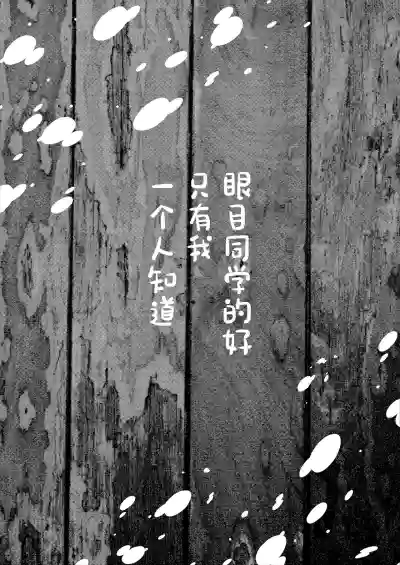 眼目同学的好
只有我
一个人知道